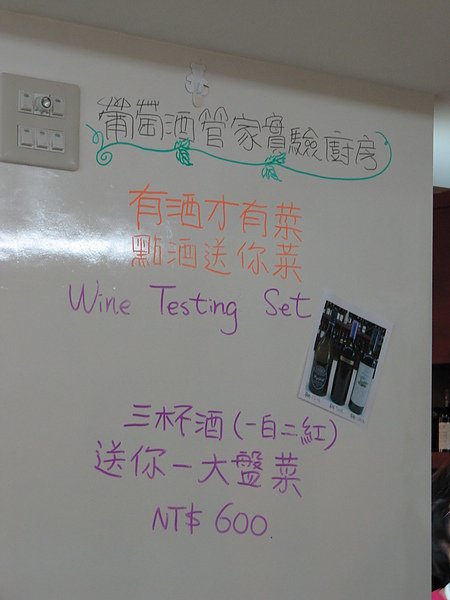 葡萄酒管家實驗廚房
有酒才有菜
點酒送你菜
Wine Testing Set
三杯酒(一白二紅)
送你一大盤菜
NT$ 600